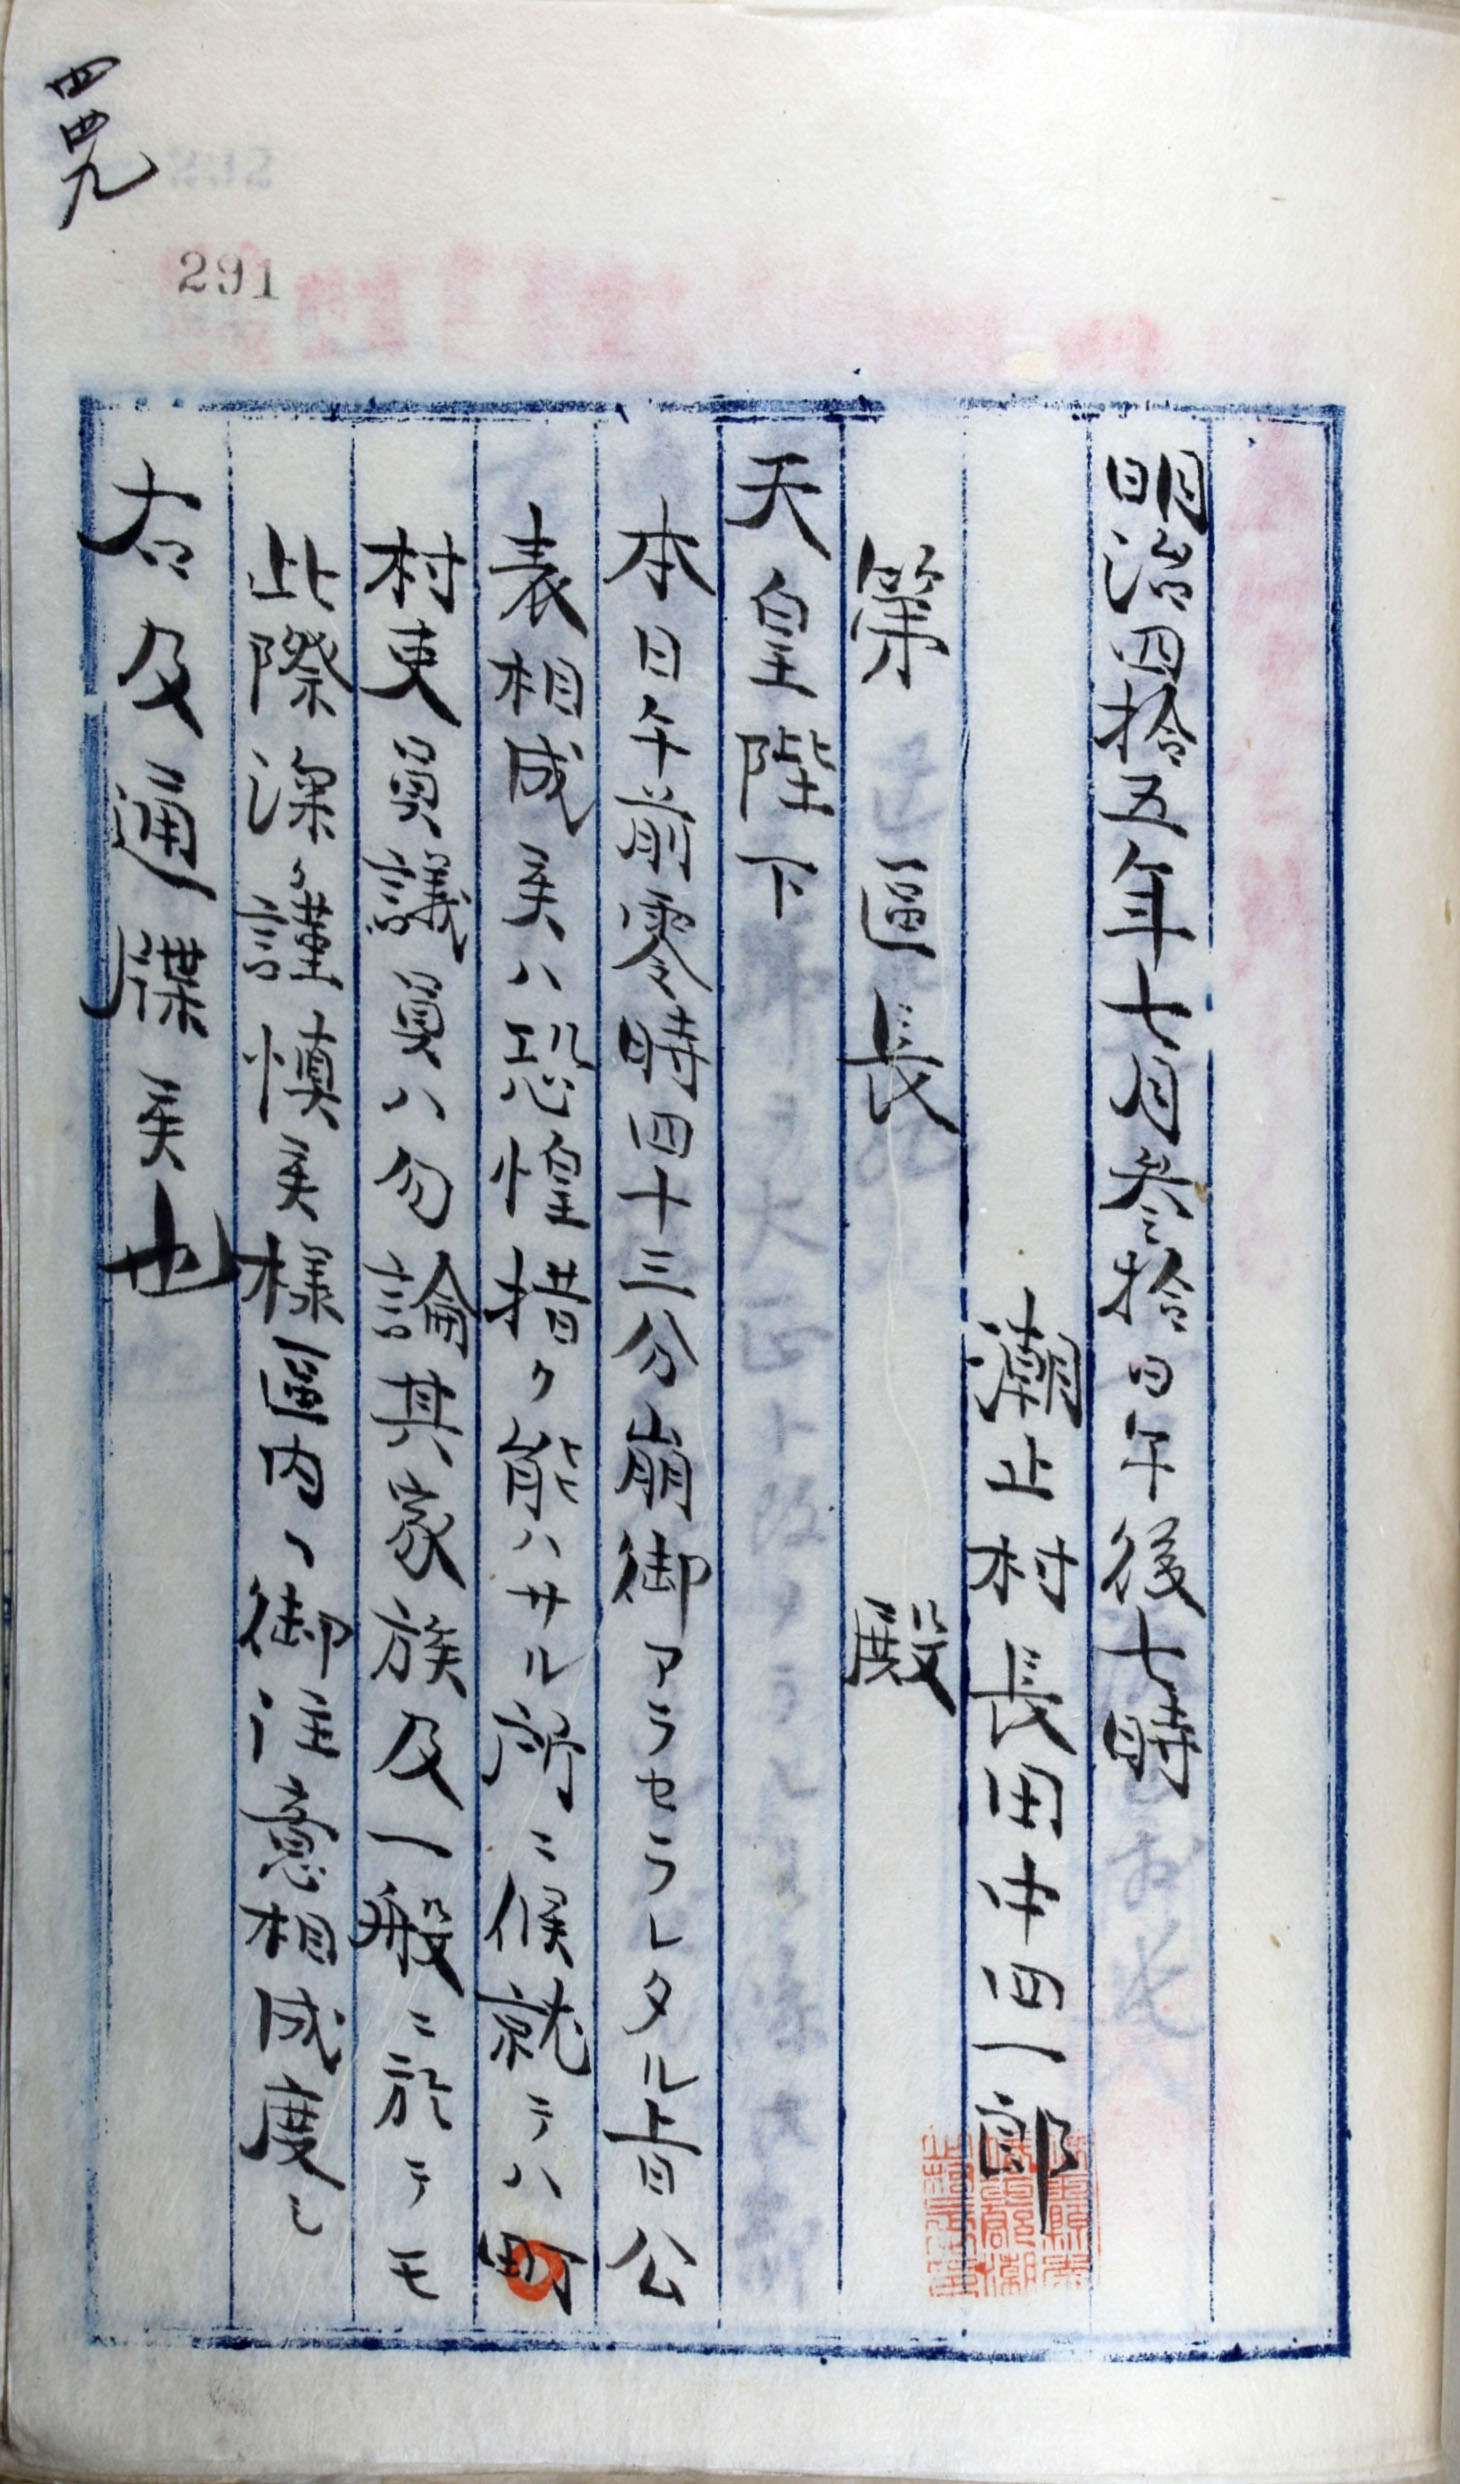 四四九
291
明治四拾五年七月参拾日午後七時
潮止村長田中四一郎
第　區長　殿
天皇陛下
本日午前零時四十三分崩御アラセラレタル旨公
表相成候ハ恐惶措ク能ハサル所ニ候就テハ町
村吏員議員ハ勿論其家族及一般ニ於テモ
此際深ク謹慎候様區内ヘ御注意相成度シ
右及通牒候也